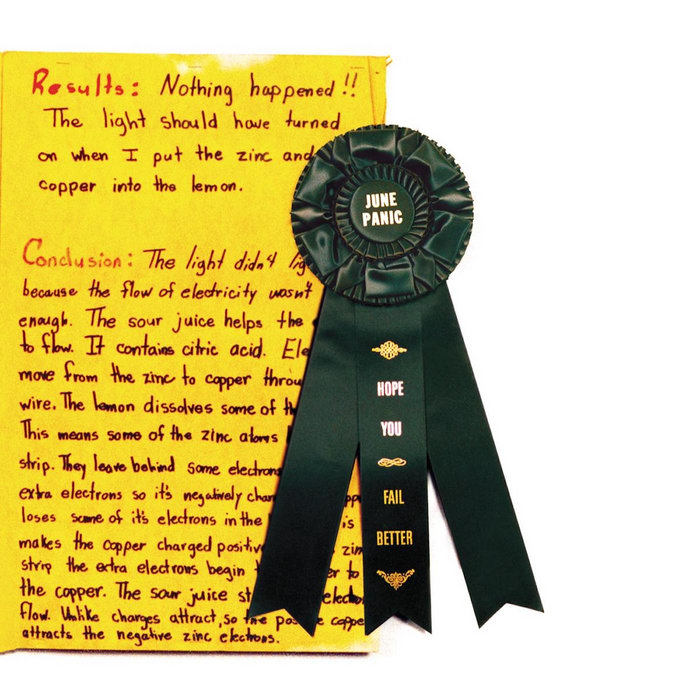 Results: Nothing happened!!
The light should have turned
on when I put the zinc and
copper into the lemon.
Conclusion: The light didn't lig
because the flow of electricity wasn't
enough. The sour juice helps the
to flow. It contains citric acid. Ele
move from the zinc to copper throu
wire. The lemon dissolves some of th
This means some of the zinc atoms
strip. They leave behind some electrons
extra electrons so it's negatively char
loses some of it's electrons in the is
makes the copper charged positiv zin
strip the extra electrons begin er to
the copper. The sour juice st electro
flow. Unlike charges attract, so the pos e coppe
attracts the negative zinc electrons.
JUNE
PANIC
HOPE
YOU
FAIL
BETTER